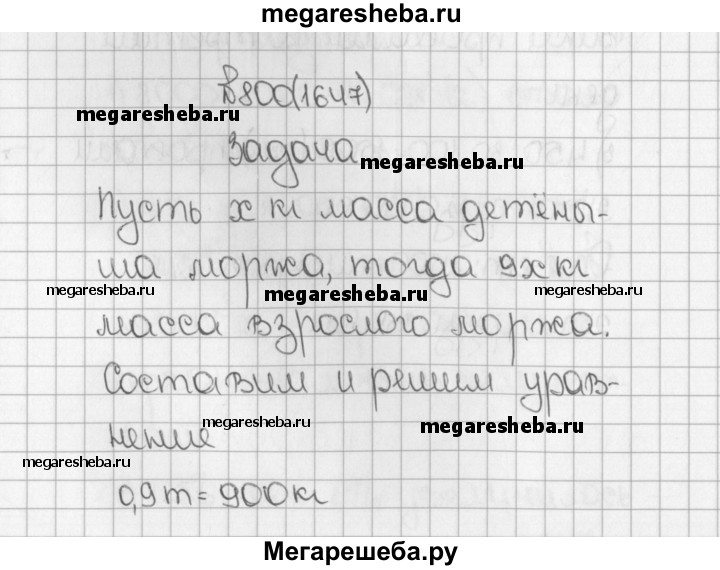 megaresheba.ru
№800(1647)
megaresheba.ru
Задача
megaresheba.ru
Пусть х кг масса детёны-
ша моржа, тогда 9х кг
megaresheba.ru
megaresheba.ru
megaresheba.ru
масса взрослого моржа.
Составим и решим урав-
megaresheba.ru
megaresheba.ru
нение
megaresheba.ru
0,9т = 900кг
Мегарешеба.ру